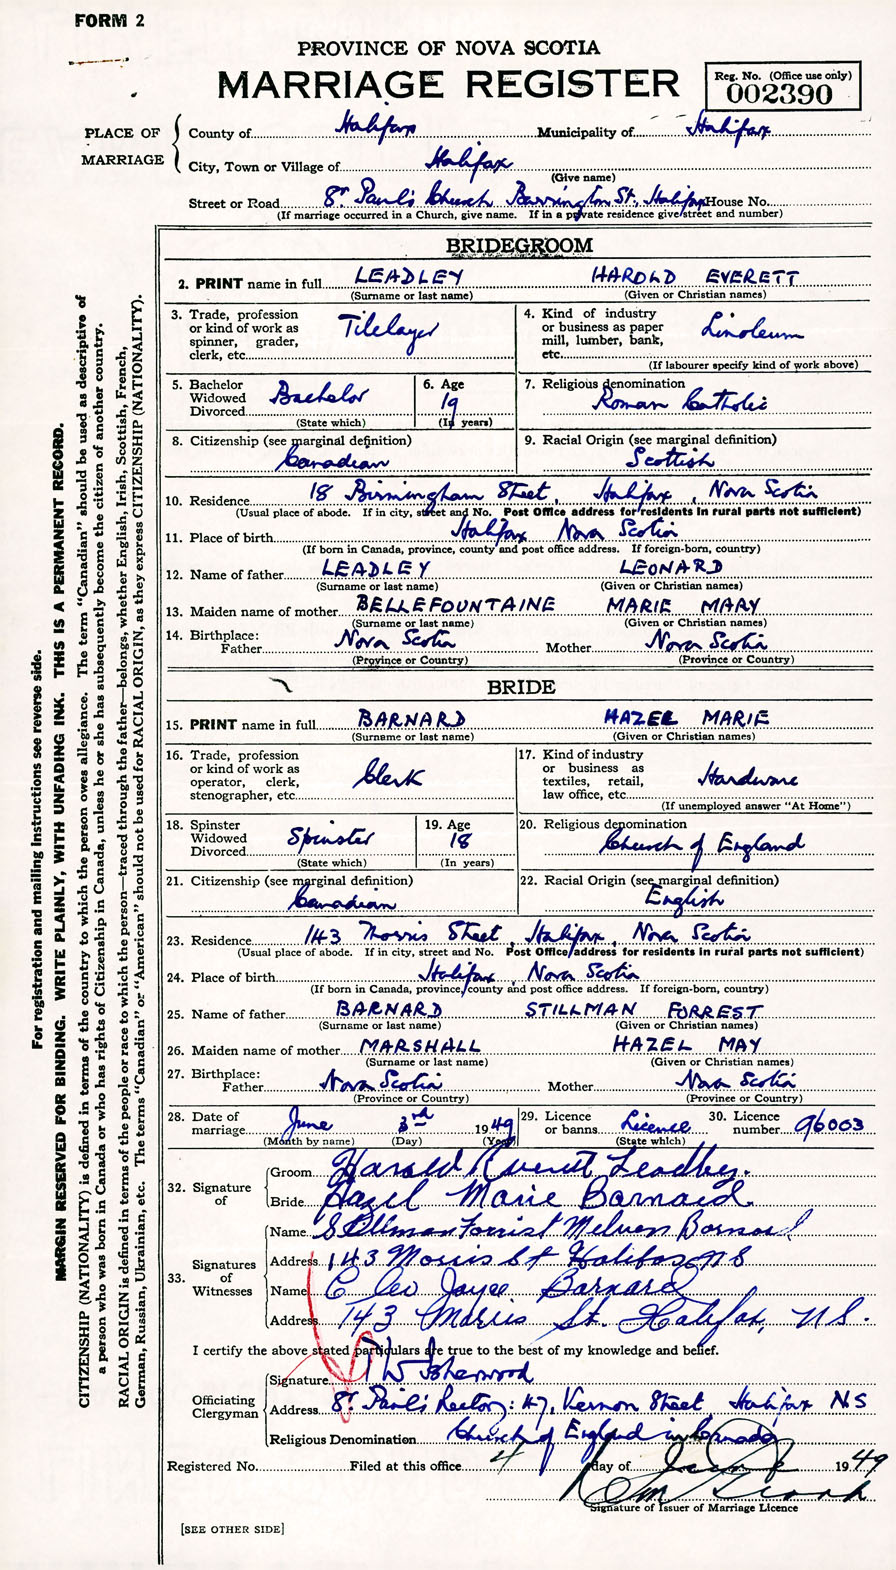 FORM 2
PROVINCE OF NOVA SCOTIA
MARRIAGE REGISTER
Reg. No. (Office use only)
002390
PLACE OF MARRIAGE
County of Halifax Municipality of Halifax
City, Town or Village of Halifax
(Give name)
Street or Road St Paul's Church Barrington St., Halifax House No.
(If marriage occurred in a Church, give name. If in a private residence give street and number)
BRIDEGROOM
2. PRINT name in full LEADLEY HAROLD EVERETT
(Surname or last name) (Given or Christian names)
3. Trade, profession or kind of work as spinner, grader, clerk, etc. Tilelayer
4. Kind of industry or business as paper mill, lumber, bank, etc. Linoleum
(If labourer specify kind of work above)
5. Bachelor Widowed Divorced Bachelor
(State which)
6. Age 19
(In years)
7. Religious denomination Roman Catholic
8. Citizenship (see marginal definition) Canadian
9. Racial Origin (see marginal definition) Scottish
10. Residence 18 Birmingham Street, Halifax, Nova Scotia
(Usual place of abode. If in city, street and No. Post Office address for residents in rural parts not sufficient)
11. Place of birth Halifax Nova Scotia
(If born in Canada, province, county and post office address. If foreign-born, country)
12. Name of father LEADLEY LEONARD
(Surname or last name) (Given or Christian names)
13. Maiden name of mother BELLEFOUNTAINE MARIE MARY
(Surname or last name) (Given or Christian names)
14. Birthplace: Father Nova Scotia Mother Nova Scotia
(Province or Country) (Province or Country)
BRIDE
15. PRINT name in full BARNARD HAZEL MARIE
(Surname or last name) (Given or Christian names)
16. Trade, profession or kind of work as operator, clerk, stenographer, etc. Clerk
17. Kind of industry or business as textiles, retail, law office, etc. Hardware
(If unemployed answer "At Home")
18. Spinster Widowed Divorced Spinster
(State which)
19. Age 18
(In years)
20. Religious denomination Church of England
21. Citizenship (see marginal definition) Canadian
22. Racial Origin (see marginal definition) English
23. Residence 143 Morris Street, Halifax, Nova Scotia
(Usual place of abode. If in city, street and No. Post Office address for residents in rural parts not sufficient)
24. Place of birth Halifax, Nova Scotia
(If born in Canada, province, county and post office address. If foreign-born, country)
25. Name of father BARNARD STILLMAN FORREST
(Surname or last name) (Given or Christian names)
26. Maiden name of mother MARSHALL HAZEL MAY
(Surname or last name) (Given or Christian names)
27. Birthplace: Father Nova Scotia Mother Nova Scotia
(Province or Country) (Province or Country)
28. Date of marriage June 3rd 1949
(Month by name) (Day) (Year)
29. Licence or banns Licence
(State which)
30. Licence number 96003
32. Signature of
Groom Harold Everett Leadley.
Bride Hazel Marie Barnard
33. Signatures of Witnesses
Name Stillman Forrist Melven Barnard
Address 143 Morris St Halifax NS
Name C Leo Joyce Barnard
Address 143 Morris St. Halifax, N.S.
I certify the above stated particulars are true to the best of my knowledge and belief.
Officiating Clergyman
Signature T W Isherwood
Address St. Paul's Rectory: 47, Vernon Street, Halifax NS
Religious Denomination Church of England in Canada
Registered No. Filed at this office 4 day of June 1949
Signature of Issuer of Marriage Licence
[SEE OTHER SIDE]
For registration and mailing Instructions see reverse side.
MARGIN RESERVED FOR BINDING. WRITE PLAINLY, WITH UNFADING INK. THIS IS A PERMANENT RECORD.
CITIZENSHIP (NATIONALITY) is defined in terms of the country to which the person owes allegiance. The term "Canadian" should be used as descriptive of
a person who was born in Canada or who has rights of Citizenship in Canada, unless he or she has subsequently become the citizen of another country.
RACIAL ORIGIN is defined in terms of the people or race to which the person—traced through the father—belongs, whether English, Irish, Scottish, French,
German, Russian, Ukrainian, etc. The terms "Canadian" or "American" should not be used for RACIAL ORIGIN, as they express CITIZENSHIP (NATIONALITY).